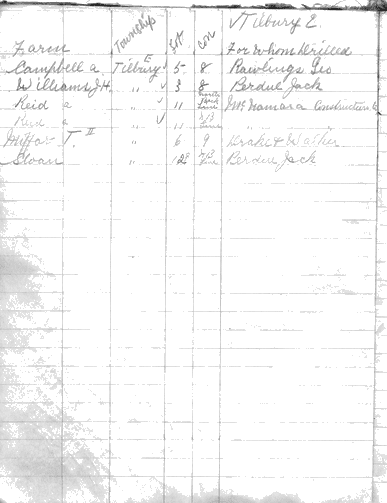 √Tilbury E.
Farm Township Lot Con For Whom Drilled
Campbell A Tilbury E √ 5 8 Rawlings Geo
Williams J.H. " √ 3 8 Berdue Jack
Reid A " √ 11 North Line McNamara Construction Co
Reid A " √ 11 Line " "
T. " 6 9 Drake & Walker
Sloan " Berdue Jack